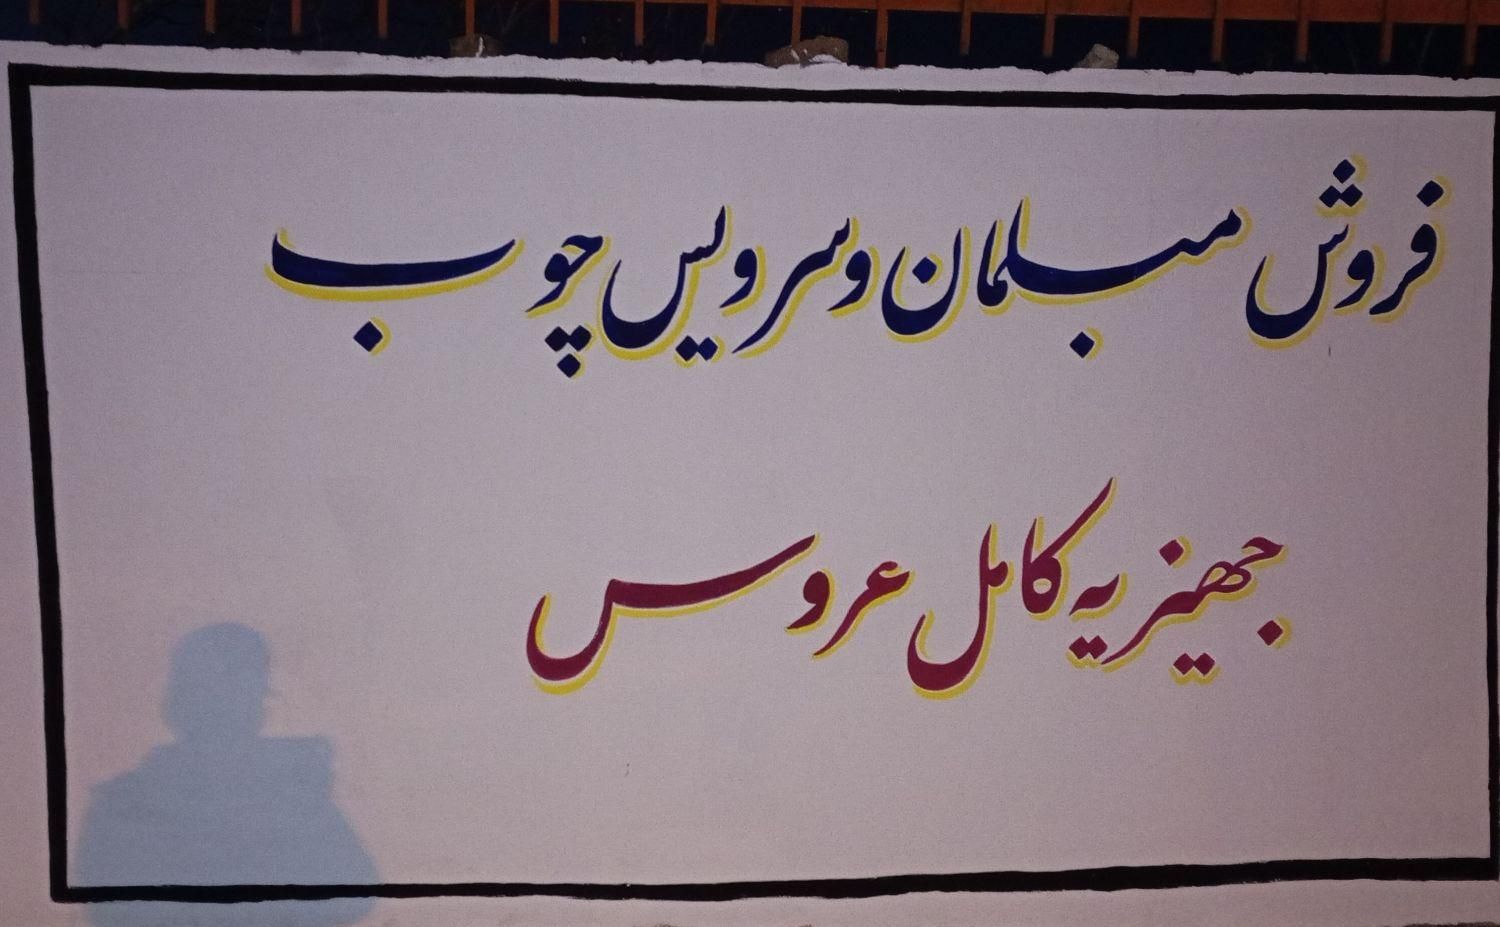 فروش مبلمان و سرویس چوب
جهیزیه کامل عروس